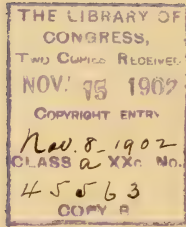 THE LIBRARY OF
CONGRESS,
TWO COPIES RECEIVED
NOV. 15 1902
COPYRIGHT ENTRY
Nov. 8-1902
CLASS a XXc. No.
45563
COPY B